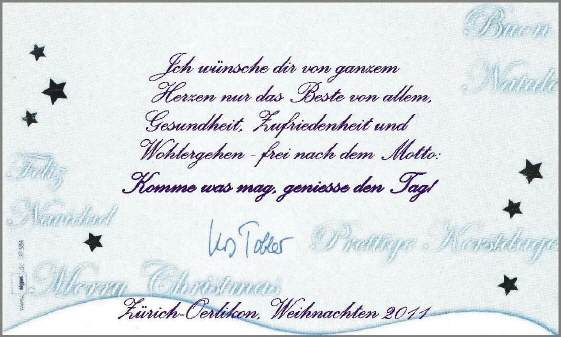 Buon
Natale
Ich wünsche dir von ganzem
Herzen nur das Beste von allem,
Gesundheit, Zufriedenheit und
Wohlergehen - frei nach dem Motto:
Komme was mag, geniesse den Tag!
Feliz
Navidad
Urs Tobler
Prettige Kerstdage
Merry Christmas
Zürich-Oerlikon, Weihnachten 2011